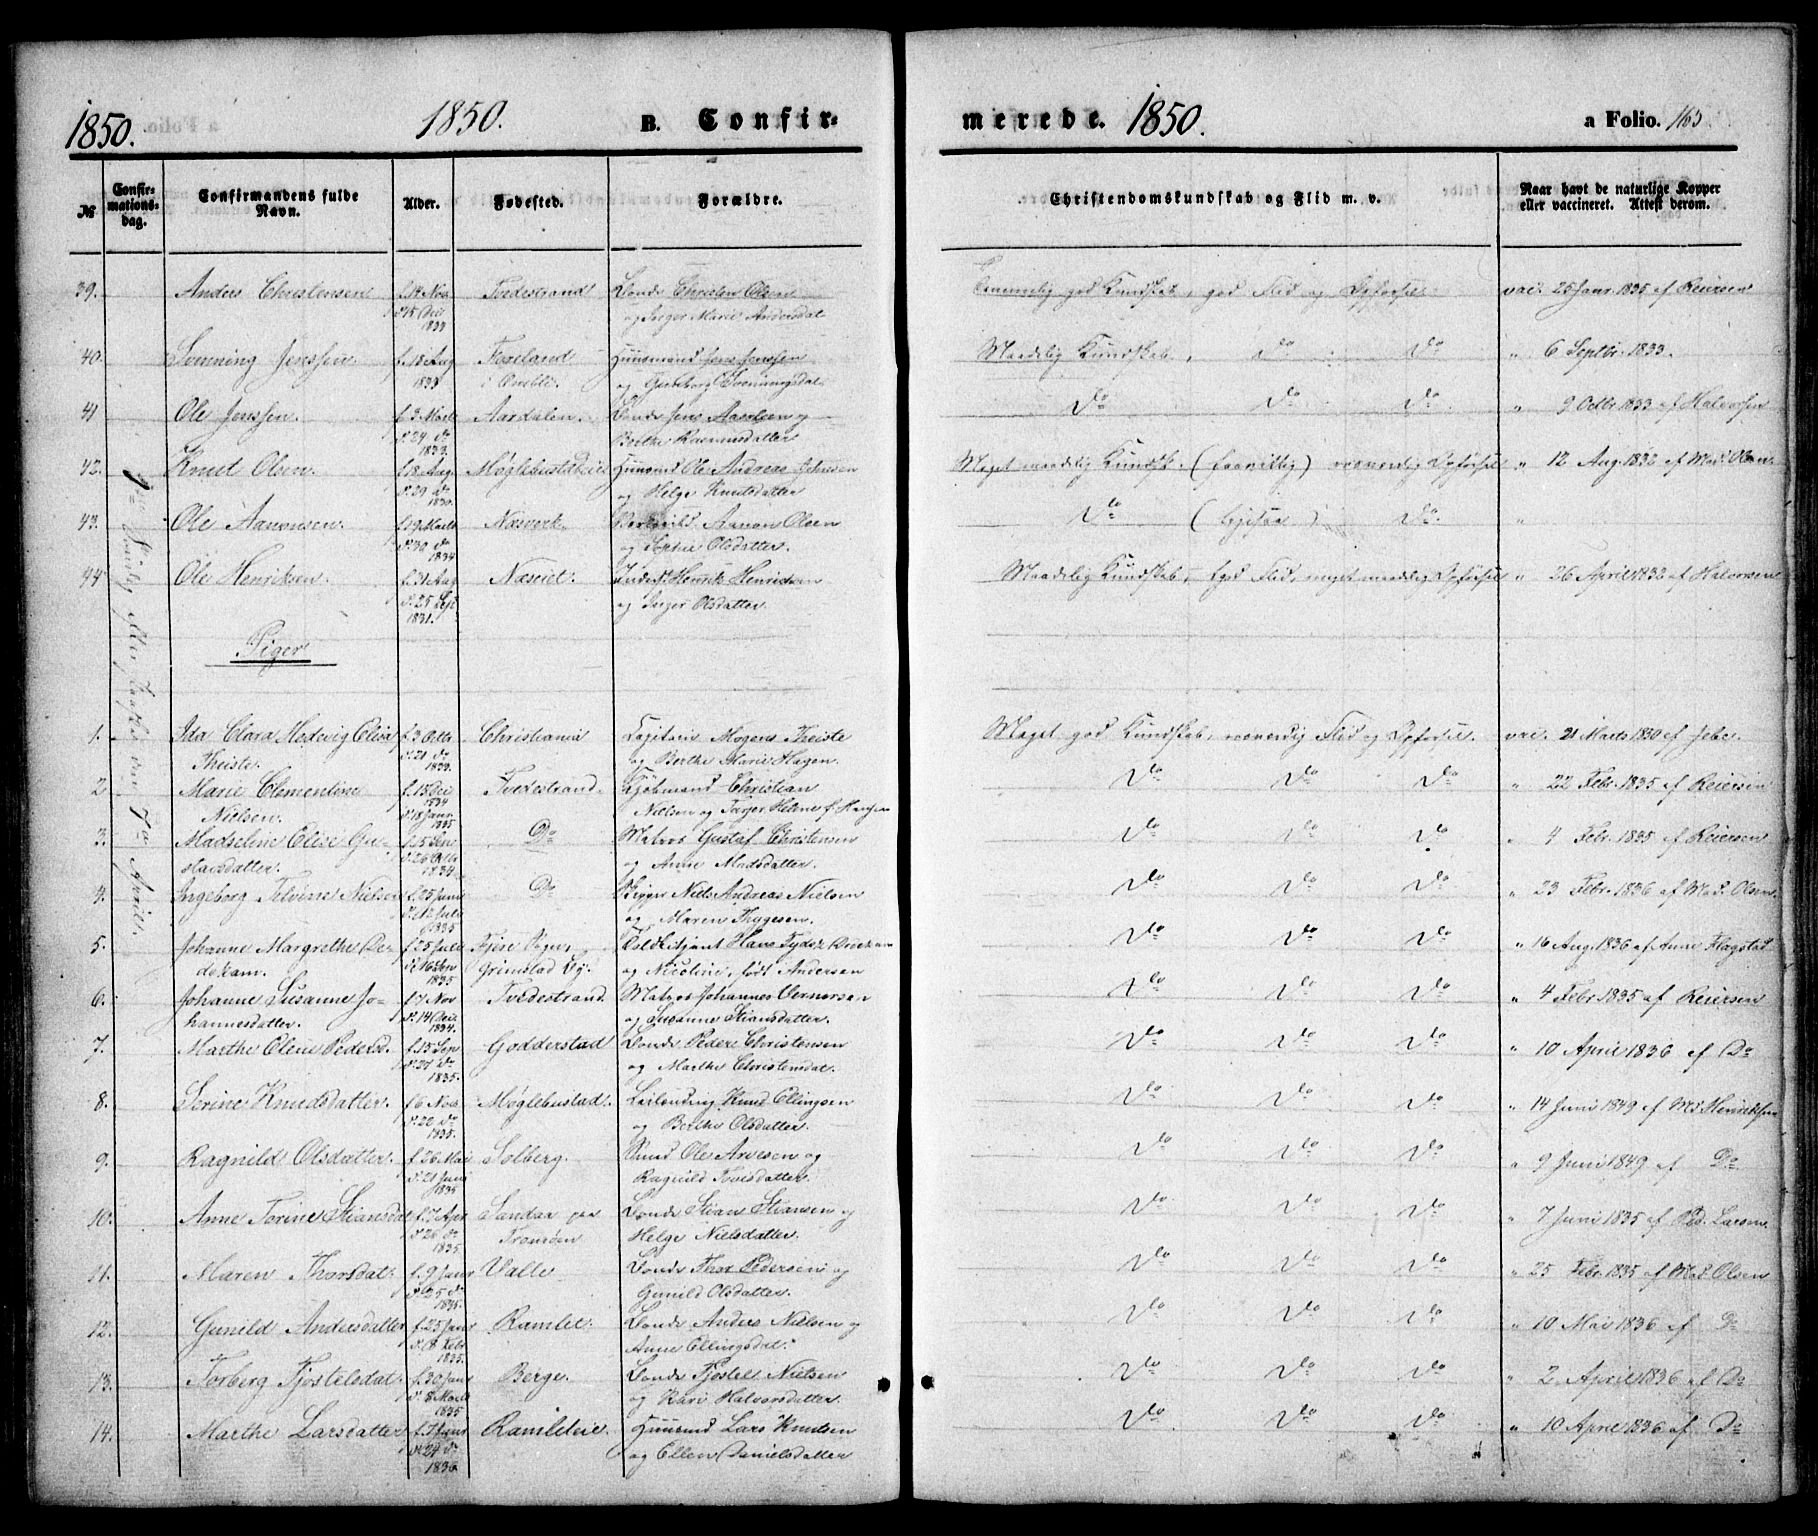 1850. 1850. B. Confirmerede. 1850. a Folio. 163
No Confirmationsdag. Confirmandens fulde Navn. Alder. Fødested. Forældre. Christendomskundskab og Flid m. v. Naar havt de naturlige Kopper eller vaccineret. Attest derom.
7de April.
39. Anders Christensen f. 14 Nov d. 15 Dec 1833 Tvedestrand Bonde Christen Olsen og Inger Marie Andersdat. Temmelig god Kundskab, god Flid og Opførsel vac. 25 Janr 1835 af Reiersen
40. Svenning Jenssen f. 18 Aug 1833 Foxeland Huusmand Jens Jenssen og Gunborg Svenningsdat. Maadelig Kundskab, Do Do " 6 Septbr. 1833.
41 Ole Jenssen. f. 3 Marts d. 24 do 1833. Aardalen. Bonde Jens Aaselsen og Berthe Rasmusdatter Do Do Do " 9 Octbr 1833 af Halvorsen
42. Knut Olsen. f. 18 Aug d. 29 do 1830. Møglebustadeiet Huusmd Ole Andreas Johnsen og Helge Knutsdatter Meget maadelig Kundsk. Opførsel " 12 Aug. 1832 af Mad. Olsen
43. Ole Aanonsen. f. 19 Marts d. 30 do 1834 Næsverk. Aanon Olsen og Sophie Olsdatter. Do Do. "
44 Ole Henriksen. f. 31 Aug d. 25 Sep 1831. Næseiet. Inderst Henrik Henriksen og Inger Olsdatter. Maadelig Kundskab, Flid, meget maadelig Opførsel " 26 April 1832 af Halvorsen
Piger
1. Ida Clara Hedevig Elise Theiste. f. 3 Octb d. 21 do 1833. Christiania Capitain Mogens Theiste og Berthe Marie Hagen. Meget god Kundskab, Flid og Opførsel. vac. 21 Marts 1850 af Jebe.
2 Marie Clementine Nielsen. f. 13 Dec 1834 d. 18 Janr 1835 Tvedestrand. Kjøbmand Christian Nielsen og Inger Helene f. Hansen Do Do Do " 22 Febr. 1835 af Reiersen
3. Madseline Elise Gustavsdatter. 1834 Do Matros Gustaf Christensen og Anne Madsdatter. Do Do Do " 4 Febr. 1835 af Reiersen
4. Ingeborg Telvine Nielsen f. 25 Juni d. 12 Juli 1835 Do Rigger Niels Andreas Nielsen og Maren Thygesen. Do Do Do " 23 Febr. 1836 af Mad. Olsen
5. Johanne Margrethe Dedekam. f. 25 Juli 1835 Fjøse Vogn, Grimstad By. Toldbetjent Hans Tydsk Dedekam og Nicoline, født Andersen Do Do Do " 16 Aug. 1836 af Anne Flagstad
6. Johanne Susanne Johannesdatter. f. 7 Nov d. 14 Dec. 1834. Tvedestrand. Matros Johannes Vernersen og Susanne Stiansdatter. Do Do Do " 4 Febr. 1835 af Reiersen
7. Marthe Olene Pedersd. f. 15 Sep d. 27 do 1835. Godderstad Bonde Peder Christensen og Marthe Christensdat. Do Do Do " 10 April 1836 af Do
8. Serine Knudsdatter. f. 6 Nov d. 20 do 1835. Møglebustad. Leilending Knud Ellingsen og Berthe Olsdatter. Do Do Do " 14 Juni 1849 af Md. Henrichsen
9. Ragnild Olsdatter. f. 26 Mai d. 21 Juni 1835 Solberg. Smed Ole Arvesen og Ragnild Tovisdatter. Do Do Do " 9 Juni 1849 af Do
10. Anne Torine Stiansdat. f. 7 Apr d. 26 do 1835. Sandaa paa Tromøen Bonde Stian Stiansen og Helge Nielsdatter. Do Do Do " 7 Juni 1835 af Ped. Larsen
11. Maren Thorsdat. f. 9 Janr d. 25 do 1835. Valle Bonde Thor Pedersen og Gunild Olsdatter. Do Do Do " 25 Febr. 1835 af Mad. Olsen
12. Gunild Andersdatter f. 25 Janr d. 8 Febr 1835. Ramlet. Bonde Anders Nielsen og Anne Ellingsdat. Do Do Do " 10 Mai 1836 af Do
13. Torberg Tjøstelsdat. f. 30 Janr d. 8 Marts 1835 Berge. Bonde Tjøstel Nielsen og Kari Halvorsdatter. Do Do Do " 2 April 1836 af Do
14. Marthe Larsdatter d. 24 do 1836 Ramleteie. Huusmd Lars Knutsen og Ellen Danielsdatter Do Do Do " 10 April 1836 af Do